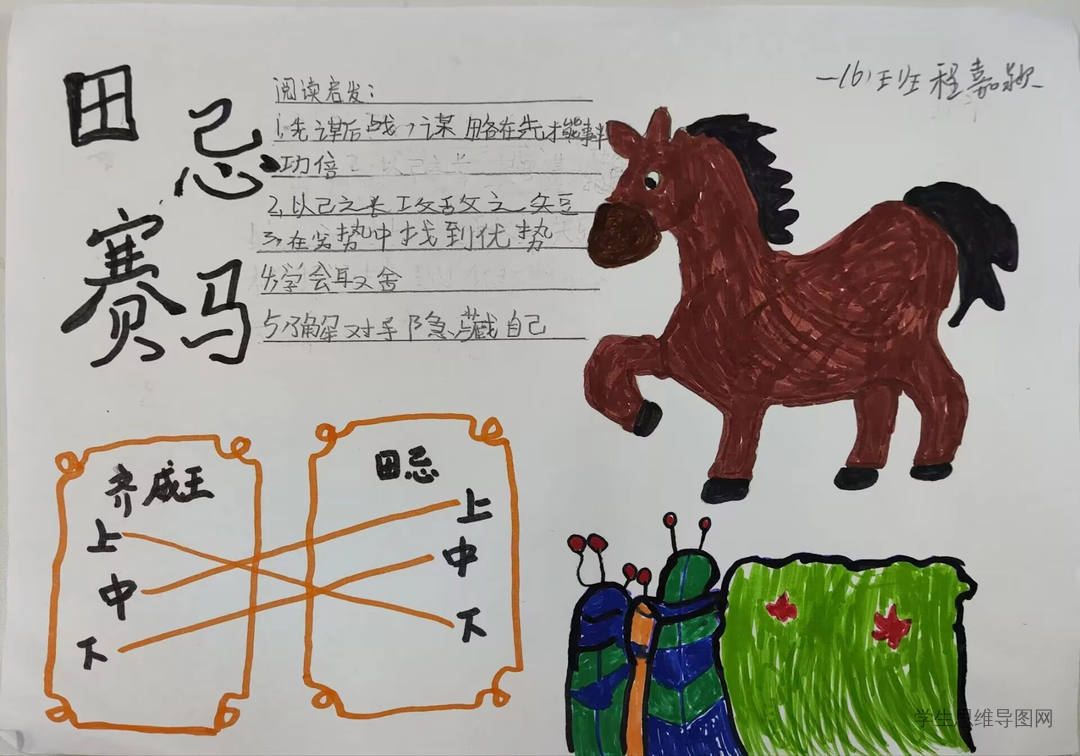 田忌
赛马
一(6)班 程嘉颖
阅读启发:
1.先谋后战,谋略在先才能事半
功倍
2.以己之长攻敌之
3.在劣势中找到优势
4.学会取舍
5.了解对手隐藏自己
齐威王
上
中
下
田忌
上
中
下
学生思维导图网